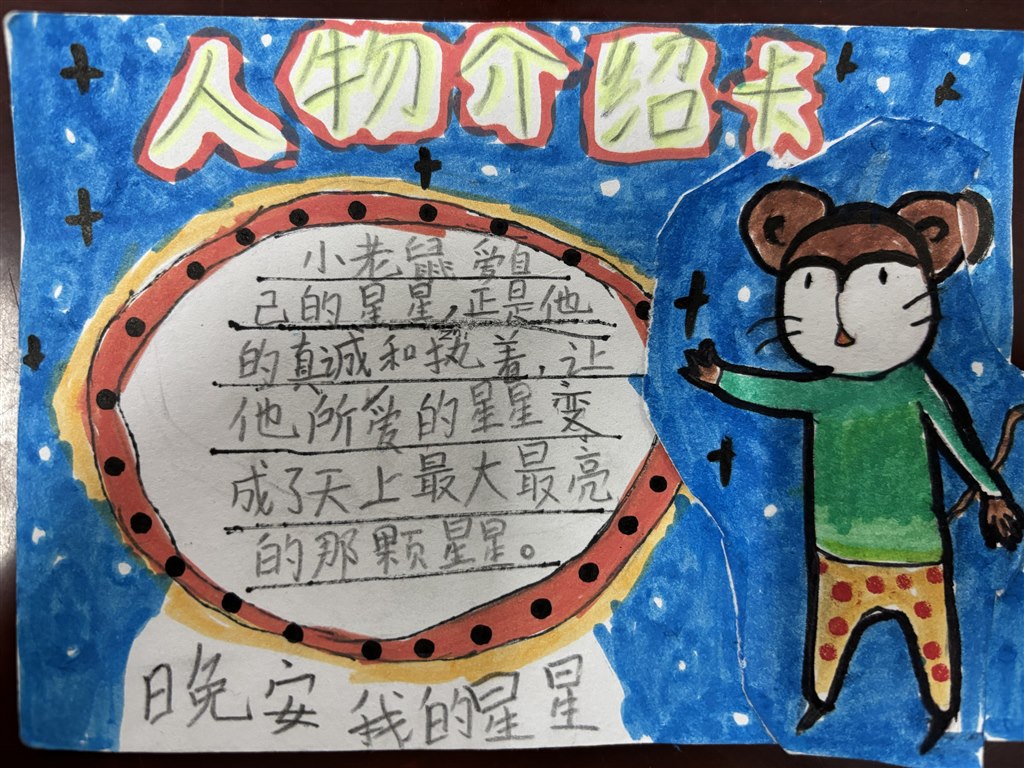 人物介绍卡
小老鼠爱自
己的星星,正是他
的真诚和执着,让
他所爱的星星变
成了天上最大最亮
的那颗星星。
晚安 我的星星